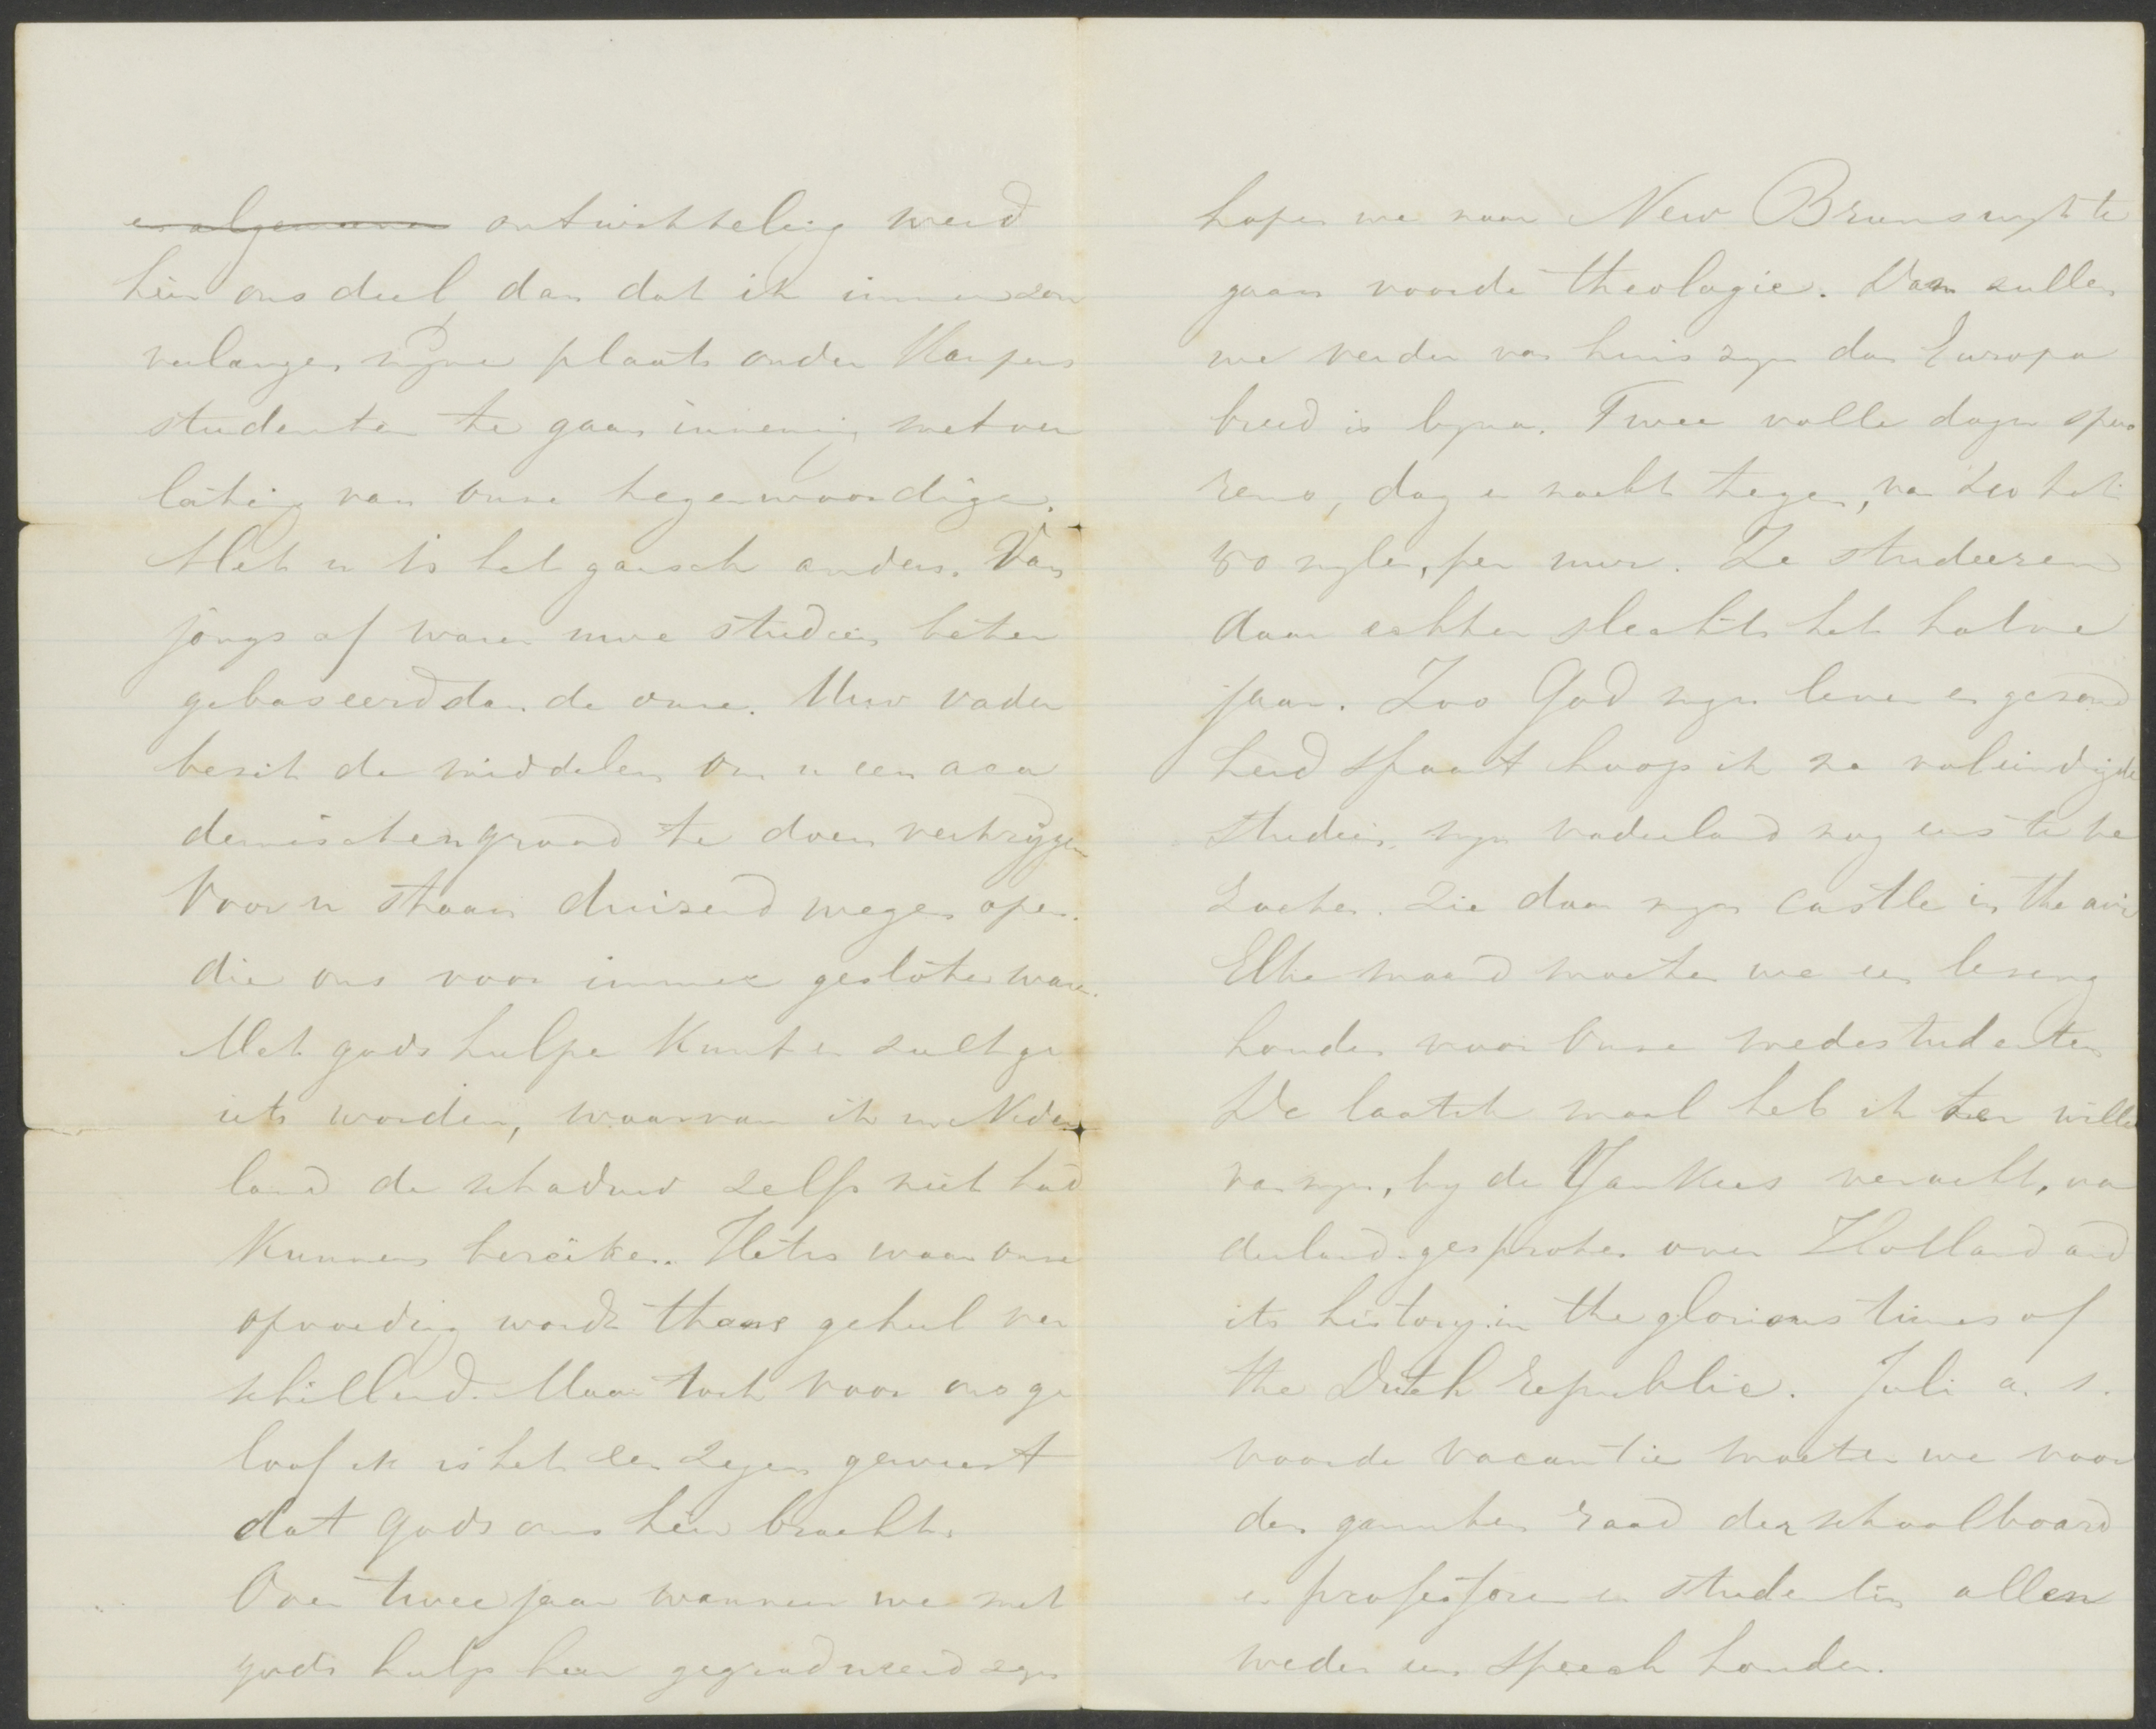 en algemeenen ontwikkeling werd
hier ons deel, dan dat ik immer zou
verlangen mijne plaats onder Kampens
studenten te gaan innemen met ver
lating van onze tegenwoordige.
Met u is het gansch anders. Van
jongs af waren uwe studien beter
gebaseerd dan de onze. Uw vader
bezit de middelen om u een aca
demischen graad te doen verkrijgen
Voor u staan duizend wegen open.
die ons voor immer gesloten waren.
Met gods hulpe kunt en zult ge
iets worden, waarvan ik in Neder
land de schaduw zelfs niet had
kunnen bereiken. Het is waar onze
opvoeding wordt thans geheel ver
schillend. Maar toch voor ons ge
loof ik is het een zegen geweest
dat gods ons hier bracht.
Over twee jaar wanneer we met
gods hulp hier gegradueerd zijn
hopen we naar New Brunswyk te
gaan voor de theologie. Dan zullen
we verder van huis zijn dan Europa
breed is bijna. Twee volle dagen spo
rens, dag en nacht tegen, van 40 tot
50 mijlen, per uur. Ze studeeren
daar echter slechts het halve
jaar. Zoo God mijn leven en gezond
heid spaart hoop ik na voleindigde
studien, mijn vaderland nog eens te be
zoeken. Zie daar mijn castle in the air
Elke maand moeten we een lezing
houden voor onze medestudenten
De laatste maal heb ik ter wille
van mijn, bij de Yankees veracht, va
derland gesproken over Holland and
its history in the glorious times of
the Dutch Republic. Juli a. s.
voor de vacantie moeten we voor
den ganschen raad der schoolboard
en professoren en studenten allen
weder een speech houden.